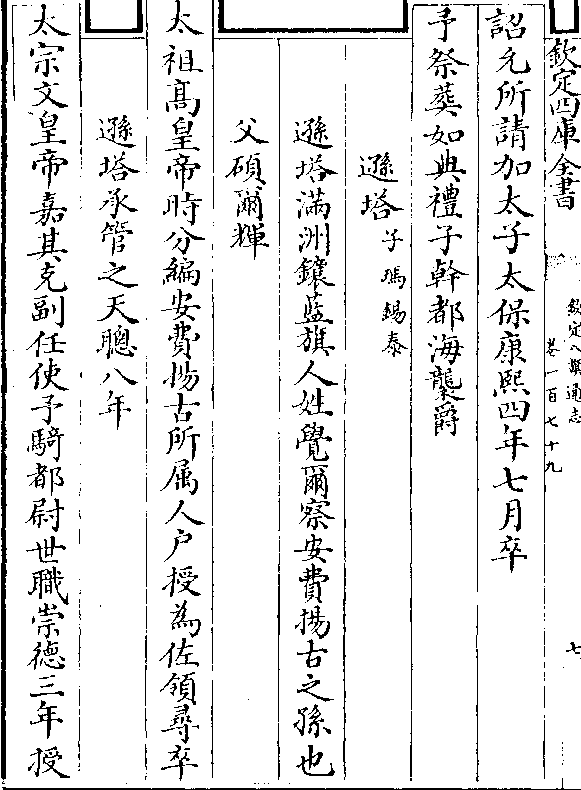 欽定四庫全書
欽定八旗通志
卷一百七十九
七
詔允所請加太子太保康熙四年七月卒
予祭葬如典禮子幹都海襲爵
遜塔子瑪錫泰
遜塔滿洲鑲藍旗人姓覺爾察安費揚古之孫也
父碩爾輝
太祖髙皇帝時分編安費揚古所属人户授為佐領尋卒
遜塔承管之天聰八年
太宗文皇帝嘉其克副任使予騎都尉世職崇德三年授